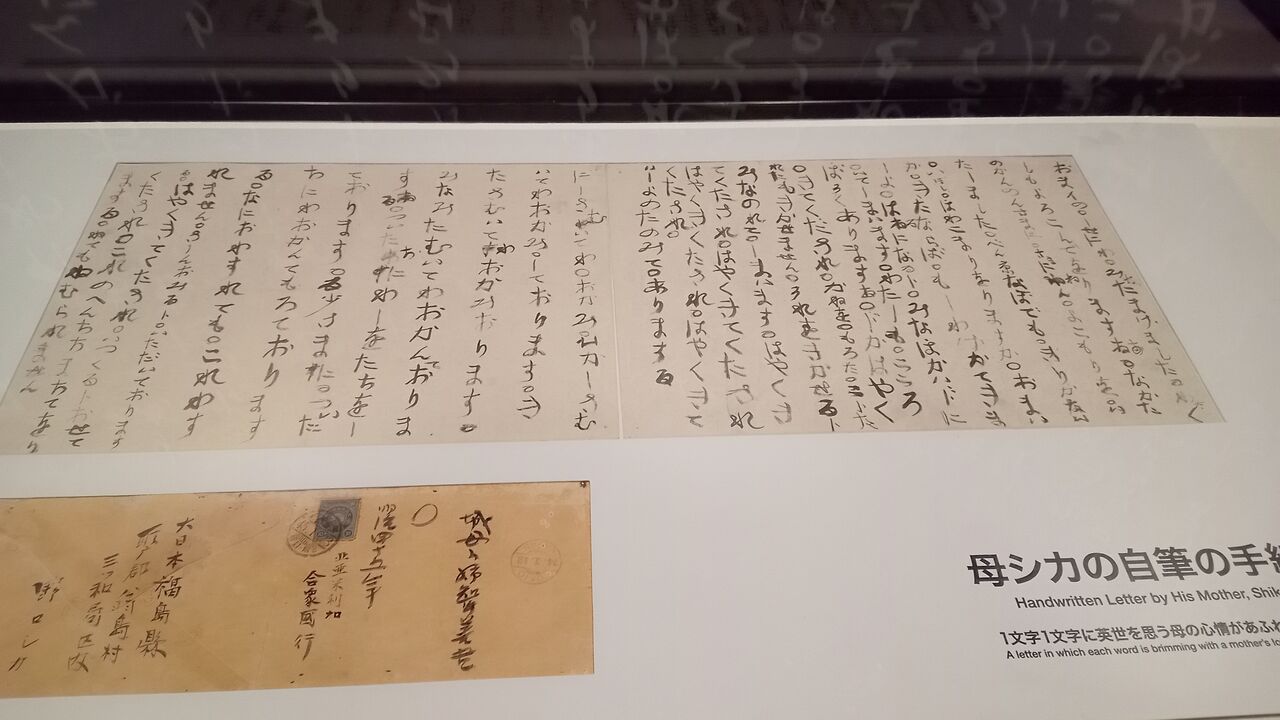 おまイの。しせにわ。みなたまけました。わたく
しもよろこんでをりまする。なかた
のかんのんさまに。さまにねん。よこもりを。い
たしました。べん京なぼでも。きりかない
いぼし。ほわこまりおりますか。おまい
か。きたならば。もしわけかてきま
しよ。はるになるト。みなほかイドに
いてしまいます。わたしも。こころ
ぼそくありまする。ドカはやく
きてくだされ。かねを。もろた。こトた
れにもきかせません。それをきかせるト
みなのれて。しまいます。はやくき
てくたされ。はやくきてくたされ
はやくきてくたされ。はやくきて
くたされ。
いしよのたのみて。ありまする
にしさむいてわ。おかみ。ひかしさむ
いてわおかみ。しております。き
たさむいてわおかみおります。
みなみたむいてわおかんておりま
する。ついたちにわしをたちをし
ております。ゐ少さまに。ついた
ちにわおかんてもろております
る。なにおわすれても。これわす
れません。さしんおみるト。いただいております
る。はやくきてくたされ。いつくるトおせて
くたされ。これのへんちちまちてをり
まする。ねてもねむられません
明治四十五年
北亜米利加
合衆國行
大日本福島縣
耶ア郡翁島村
三ツ和
野口シカ
母シカの自筆の手紙
Handwritten Letter by His Mother, Shik
1文字1文字に英世を思う母の心情があふれ
A letter in which each word is brimming with a mother's lo